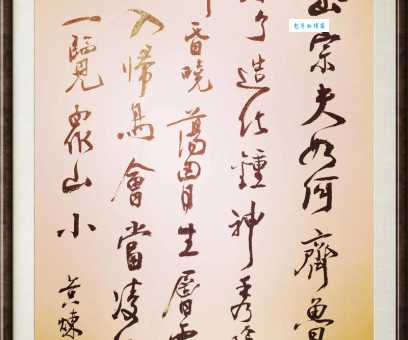 岱宗夫如何齊魯
了造化鍾神秀陰
昏曉蕩胸生層雲
入歸鳥會當凌
一覽眾山小